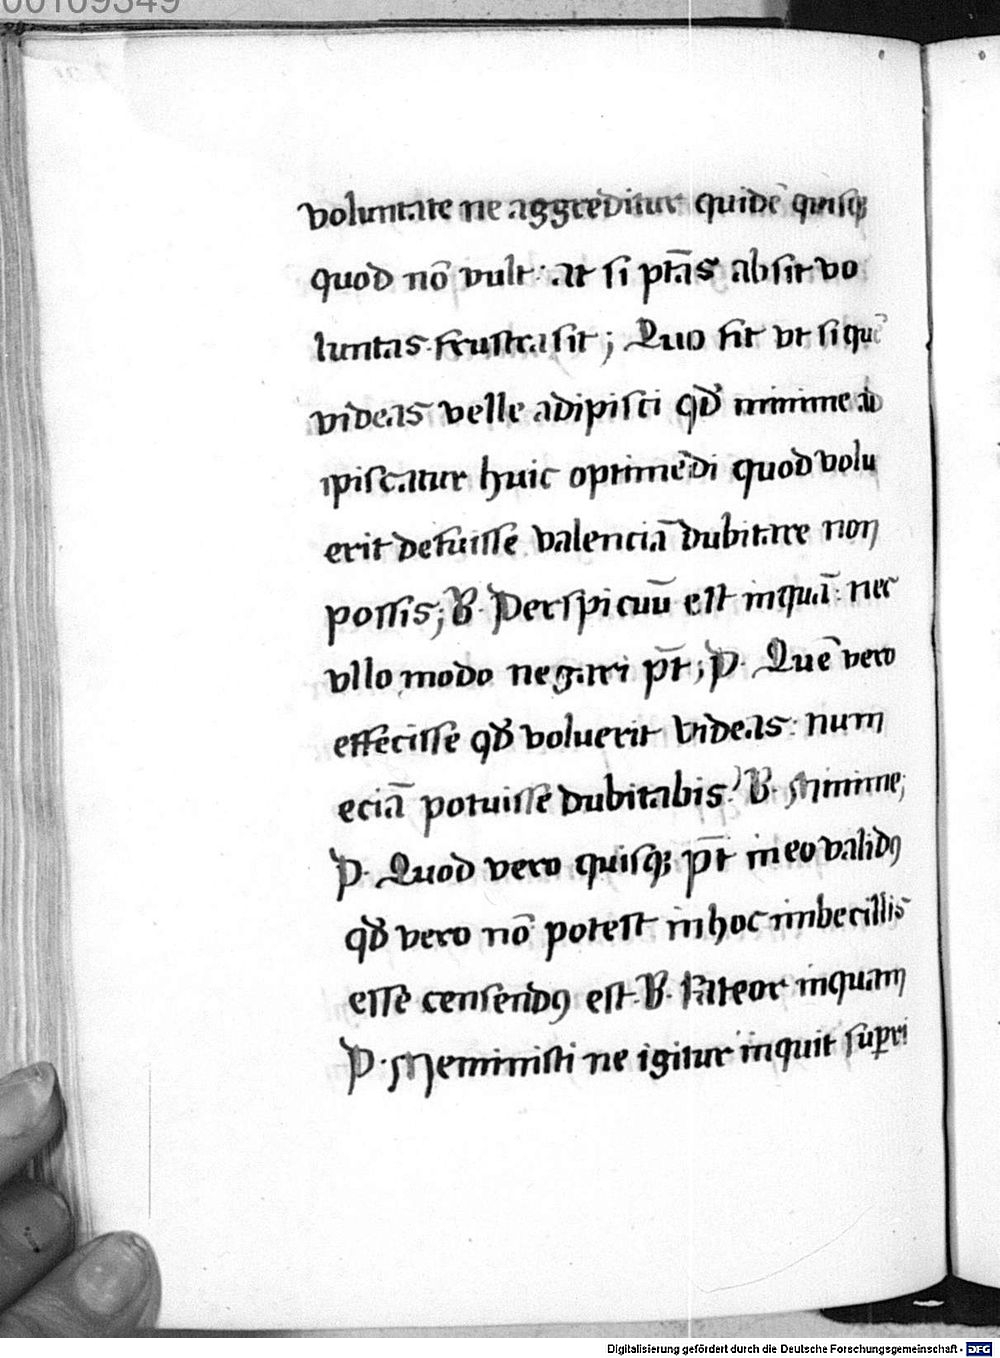 00109349
voluntate ne aggreditur quidē quisq;
quod nō vult: at si ptās absit vo
luntas frustra sit; Quo fit vt si quē
videas velle adipisci qd̄ minime ad
ipiscatur huic optimēdi quod volu
erit defuisse valenciā dubitare non
possis; B. Perspicuū est inquā: nec
vllo modo negari pt̄; P. Quē vero
effecisse qd̄ voluerit videas: num
eciā potuisse dubitabis? B. Minime;
P. Quod vero quisq; pt̄ in eo validꝯ
qd̄ vero nō potest in hoc imbecillis
esse censendꝯ est. B. Fateor inquam
P. Meministi ne igitur inquit supri
Digitalisierung gefördert durch die Deutsche Forschungsgemeinschaft - DFG